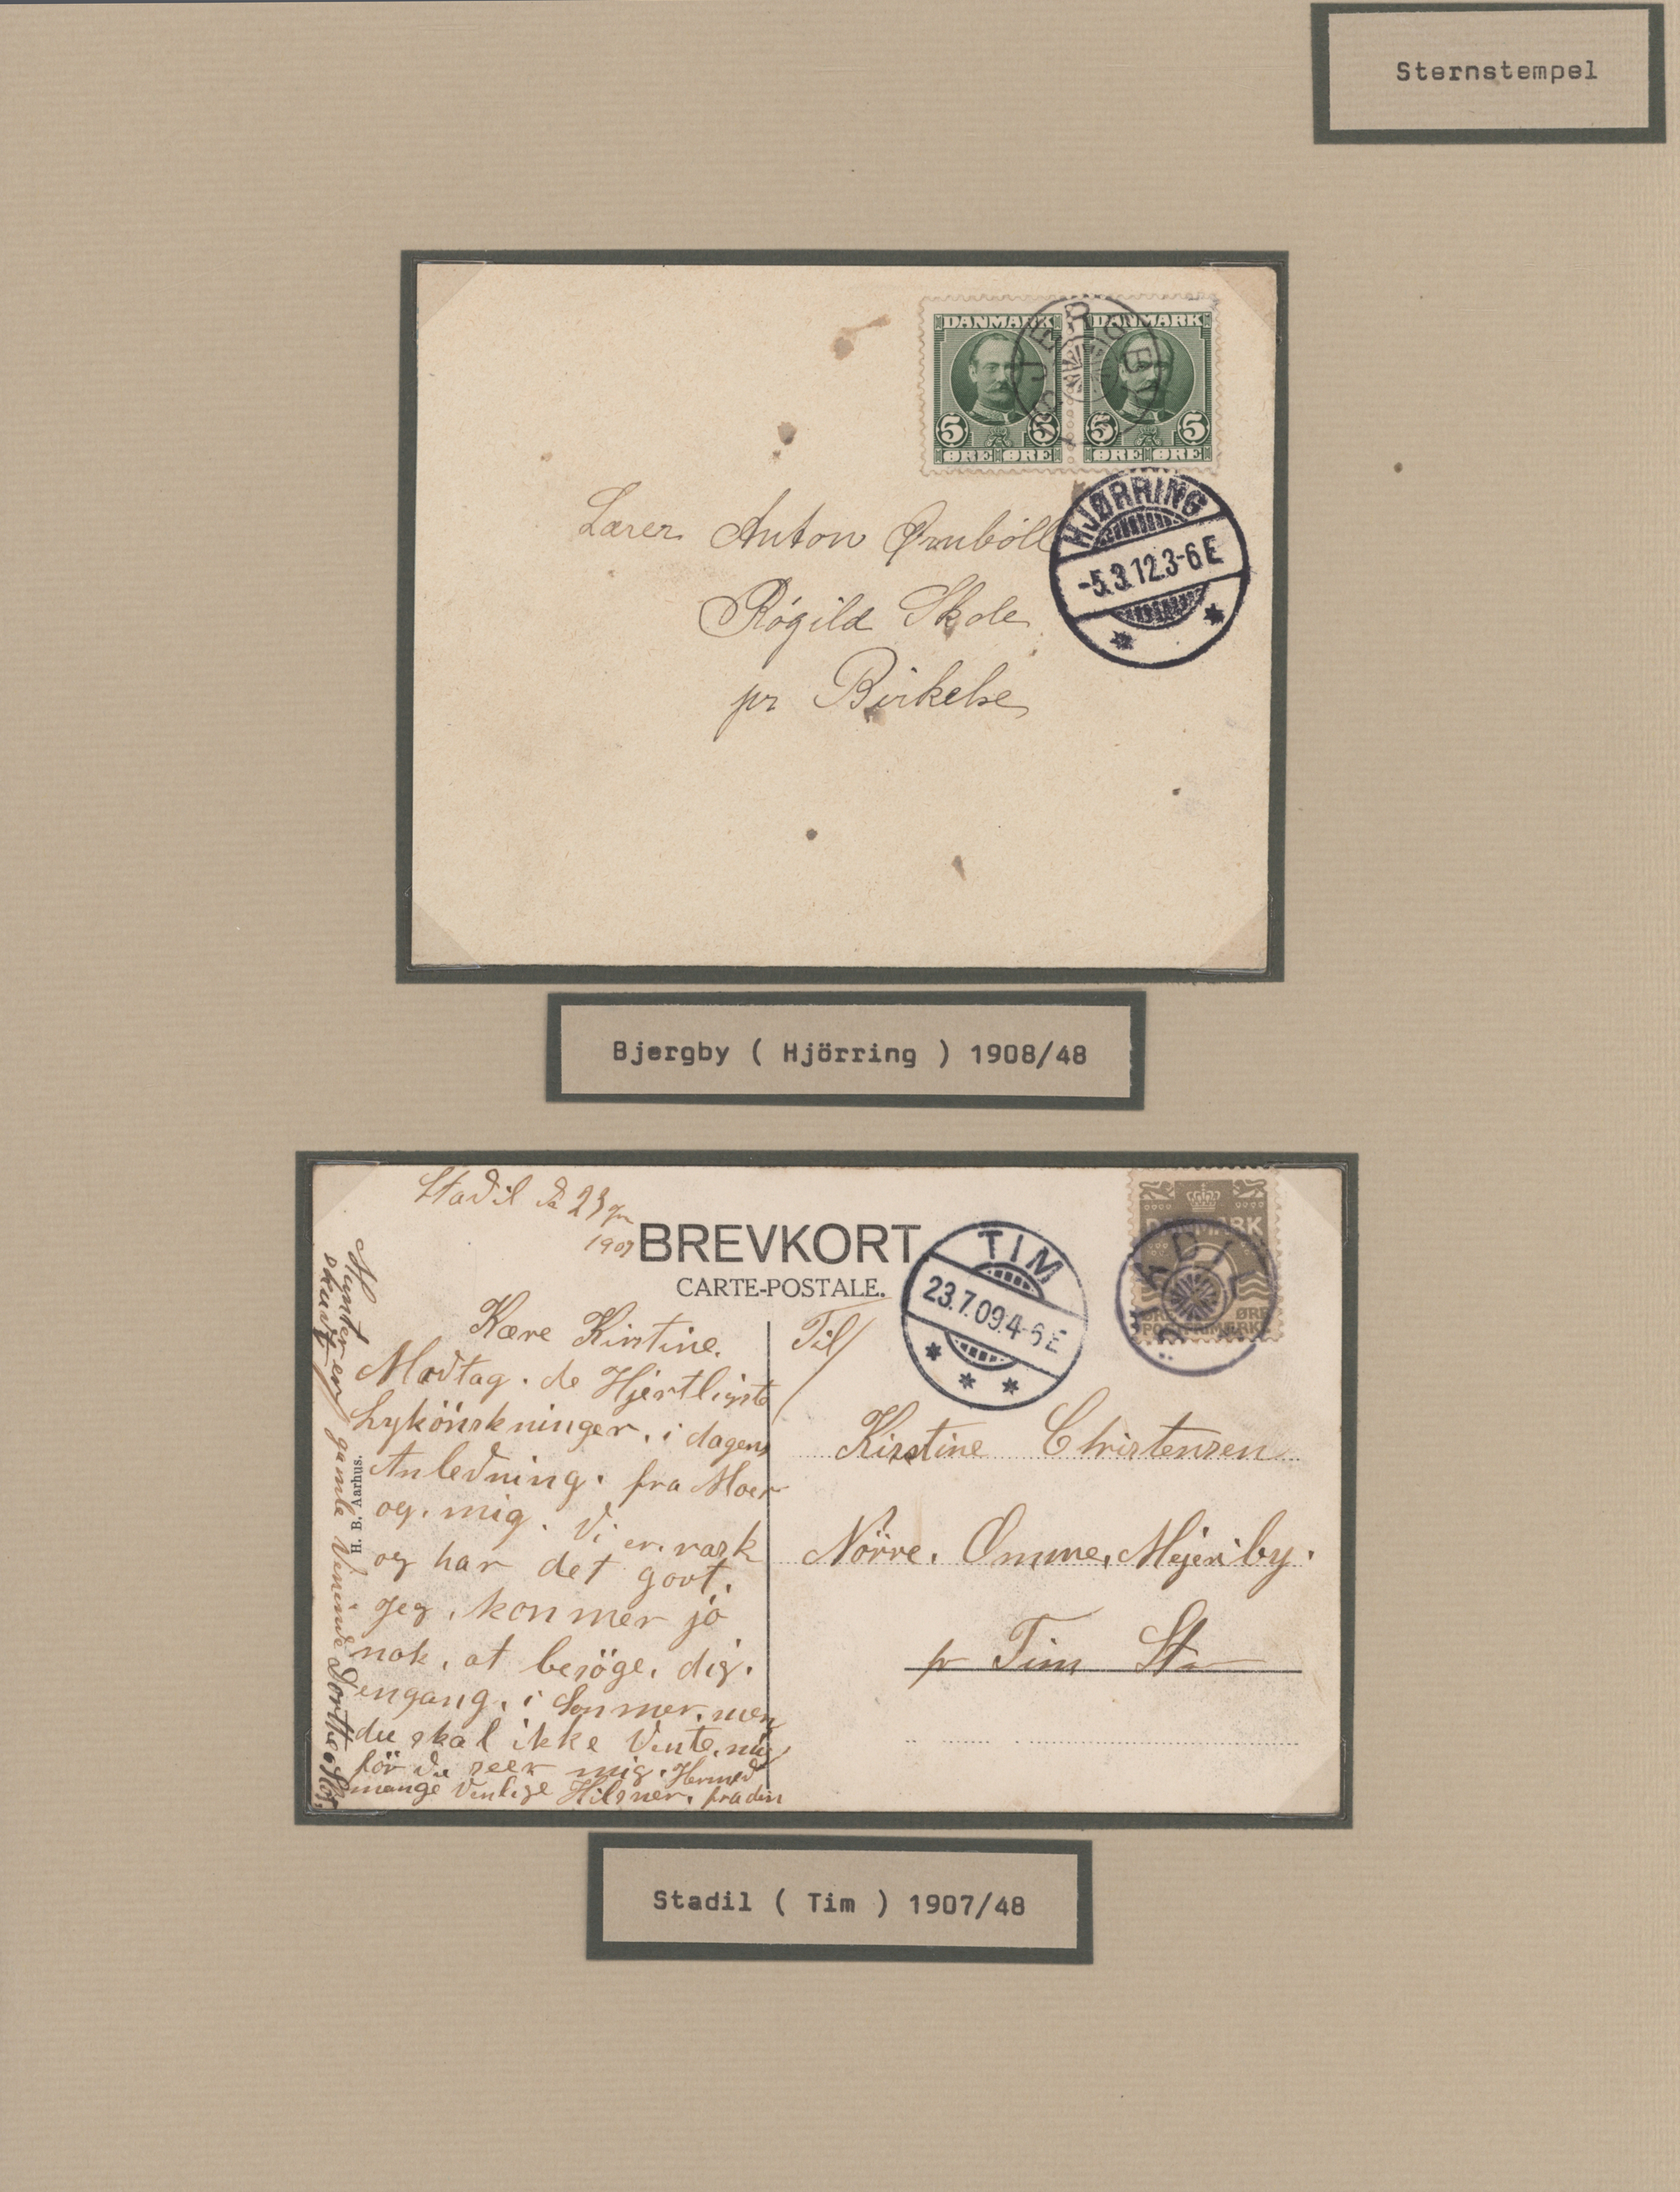 Sternstempel
DANMARK DANMARK
BJERGBY
5 5 5 5
ØRE ØRE ØRE ØRE
HJØRRING
-5.3.12.3-6 E
Lærer Anton Ørnböll
Rögild Skole
pr Birkelse
Bjergby ( Hjörring ) 1908/48
Stadil d 23
1909
BREVKORT
CARTE-POSTALE.
TIM
23.7.09.4-6 E
DANMARK
STADIL
ØRE ØRE
POSTFRIMÆRKE
Kære Kirstine.
Modtag. de Hjertligste
Lykönskninger. i dagens
Anledning. fra Moer
og. mig. Vi er. rask
og har det godt.
Jeg. kommer jo
nok. at besöge. dig.
engang. i Sommer. men
du skal ikke Vente. mig
för du seer mig. Hermed
mange Venlige Hilsner. fra din
gamle Veninde Dorthe
Mynten er
skudt
H. B. Aarhus.
Til
Kirstine Christensen
Nörre. Omme. Mejeriby.
pr Tim St
Stadil ( Tim ) 1907/48